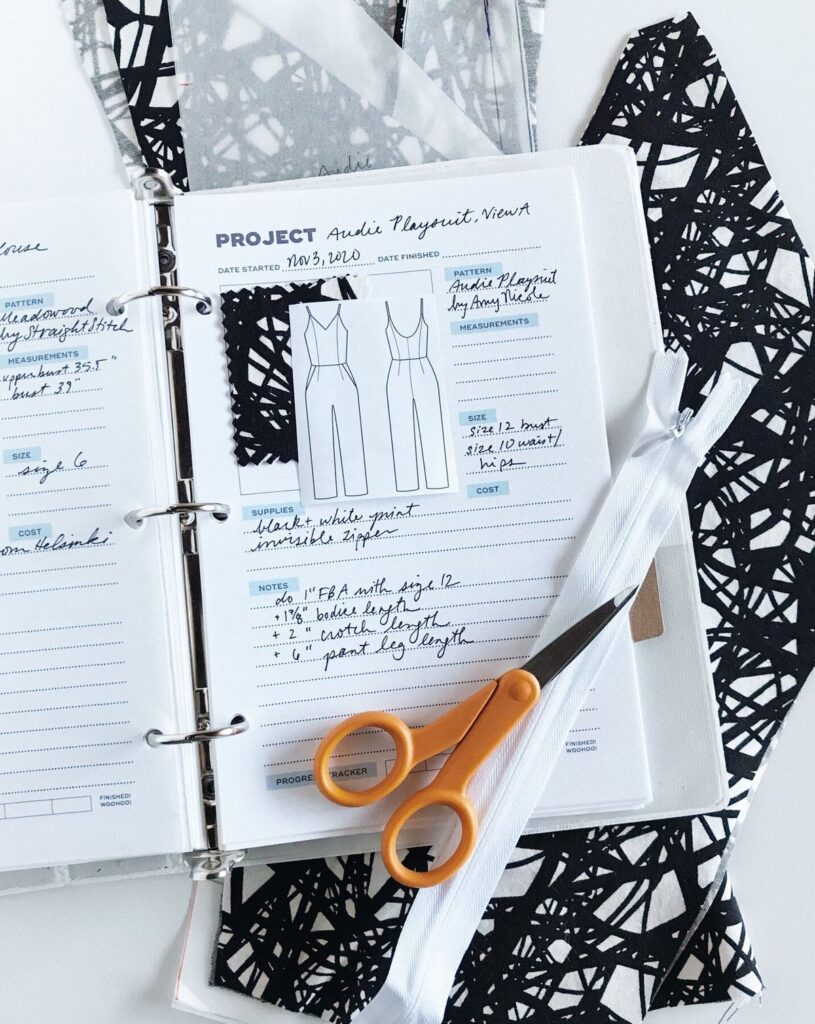 Audie
louse
PATTERN
Meadowood
by Straight Stitch
MEASUREMENTS
upper bust 35.5"
bust 39"
SIZE
size 6
COST
from Helsinki
FINISHED!
WOOHOO!
PROJECT Audie Playsuit, View A
DATE STARTED Nov 3, 2020 DATE FINISHED
PATTERN
Audie Playsuit
by Amy Nicole
MEASUREMENTS
SIZE
size 12 bust
size 10 waist/
hips
COST
SUPPLIES
black + white print
invisible zipper
NOTES
do 1" FBA with size 12
+ 1 3/8" bodice length
+ 2" crotch length
+ 6" pant leg length
PROGRESS TRACKER
FINISHED!
WOOHOO!